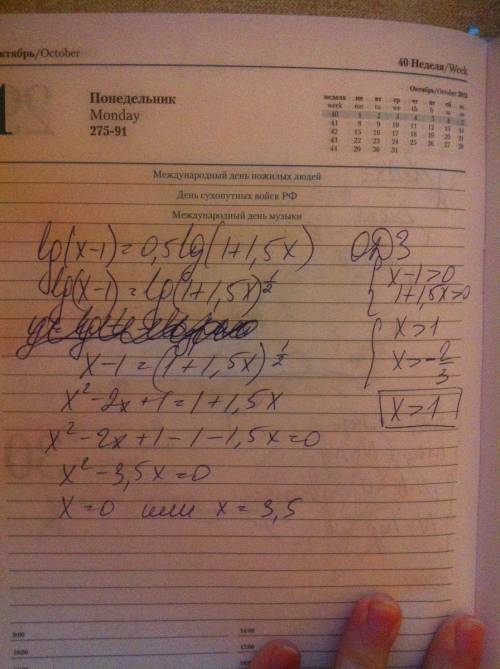 октябрь/October
40 Неделя/Week
1
Понедельник
Monday
275-91
Октябрь/October
неделя пн вт ср чт пт сб вс
week mo tu we th
40 1 2 3 4 5 6 7
41 8 9 10 11 12 13 14
42 15 16 17 18 19 20 21
43 22 23 24 25 26 27 28
44 29 30 31
Международный день пожилых людей
День сухопутных войск РФ
Международный день музыки
lg(x-1)=0,5lg(1+1,5x)
lg(x-1)=lg(1+1,5x)^½
x-1=(1+1,5x)^½
x²-2x+1=1+1,5x
x²-2x+1-1-1,5x=0
x²-3,5x=0
x=0 или x=3,5
ОДЗ
{x-1>0
1+1,5x>0
{x>1
x>-2/3
x>1
9:00
14:00
15:00